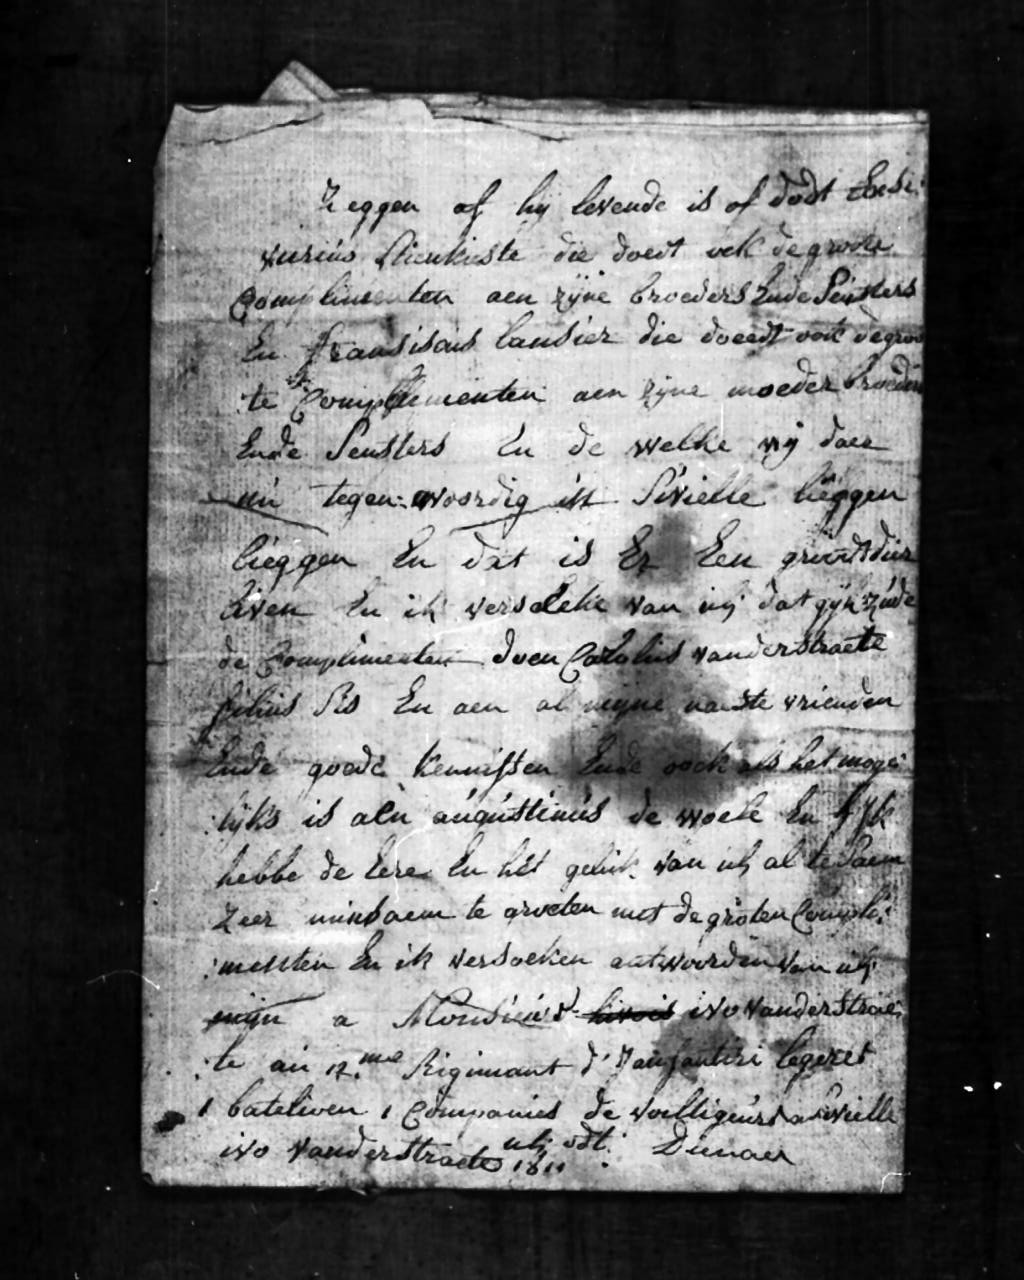 Zeggen of hij levende is of dodt
die doedt ock de groote
Complimenten aen zijne broeders Ende Seusters
En fransisius lansier die doeedt ook de groo
te Complementen aen zijne moeder broeders
Ende Seusters En de welke wij daer
nu tegen-woordig in Sivielle lieggen
lieggen En dat is Er Een groodt dier
leven En ik versoeke van ulij dat gijl zúde
de Complimenten doen Carolus vanderstraete
filius Sis En aen al mijne naeste vrienden
Ende goede kennissen Ende oock als het moge
lijks is aen augustinus de woele En ik
hebbe de Eere En het geluk van ulj al te Saem
Zeer minsaem te groeten met de groten Compli:
menten En ik versoeken antwoorden van ulij
mijn a Monsieur ivo vanderstrae,
te au 12.me Rigimant d'Janfantiri legeret
1 bateliven 1 Companies de voelligeurs a Sivielle
ivo vanderstraete ulij odt: Dienaer
1811